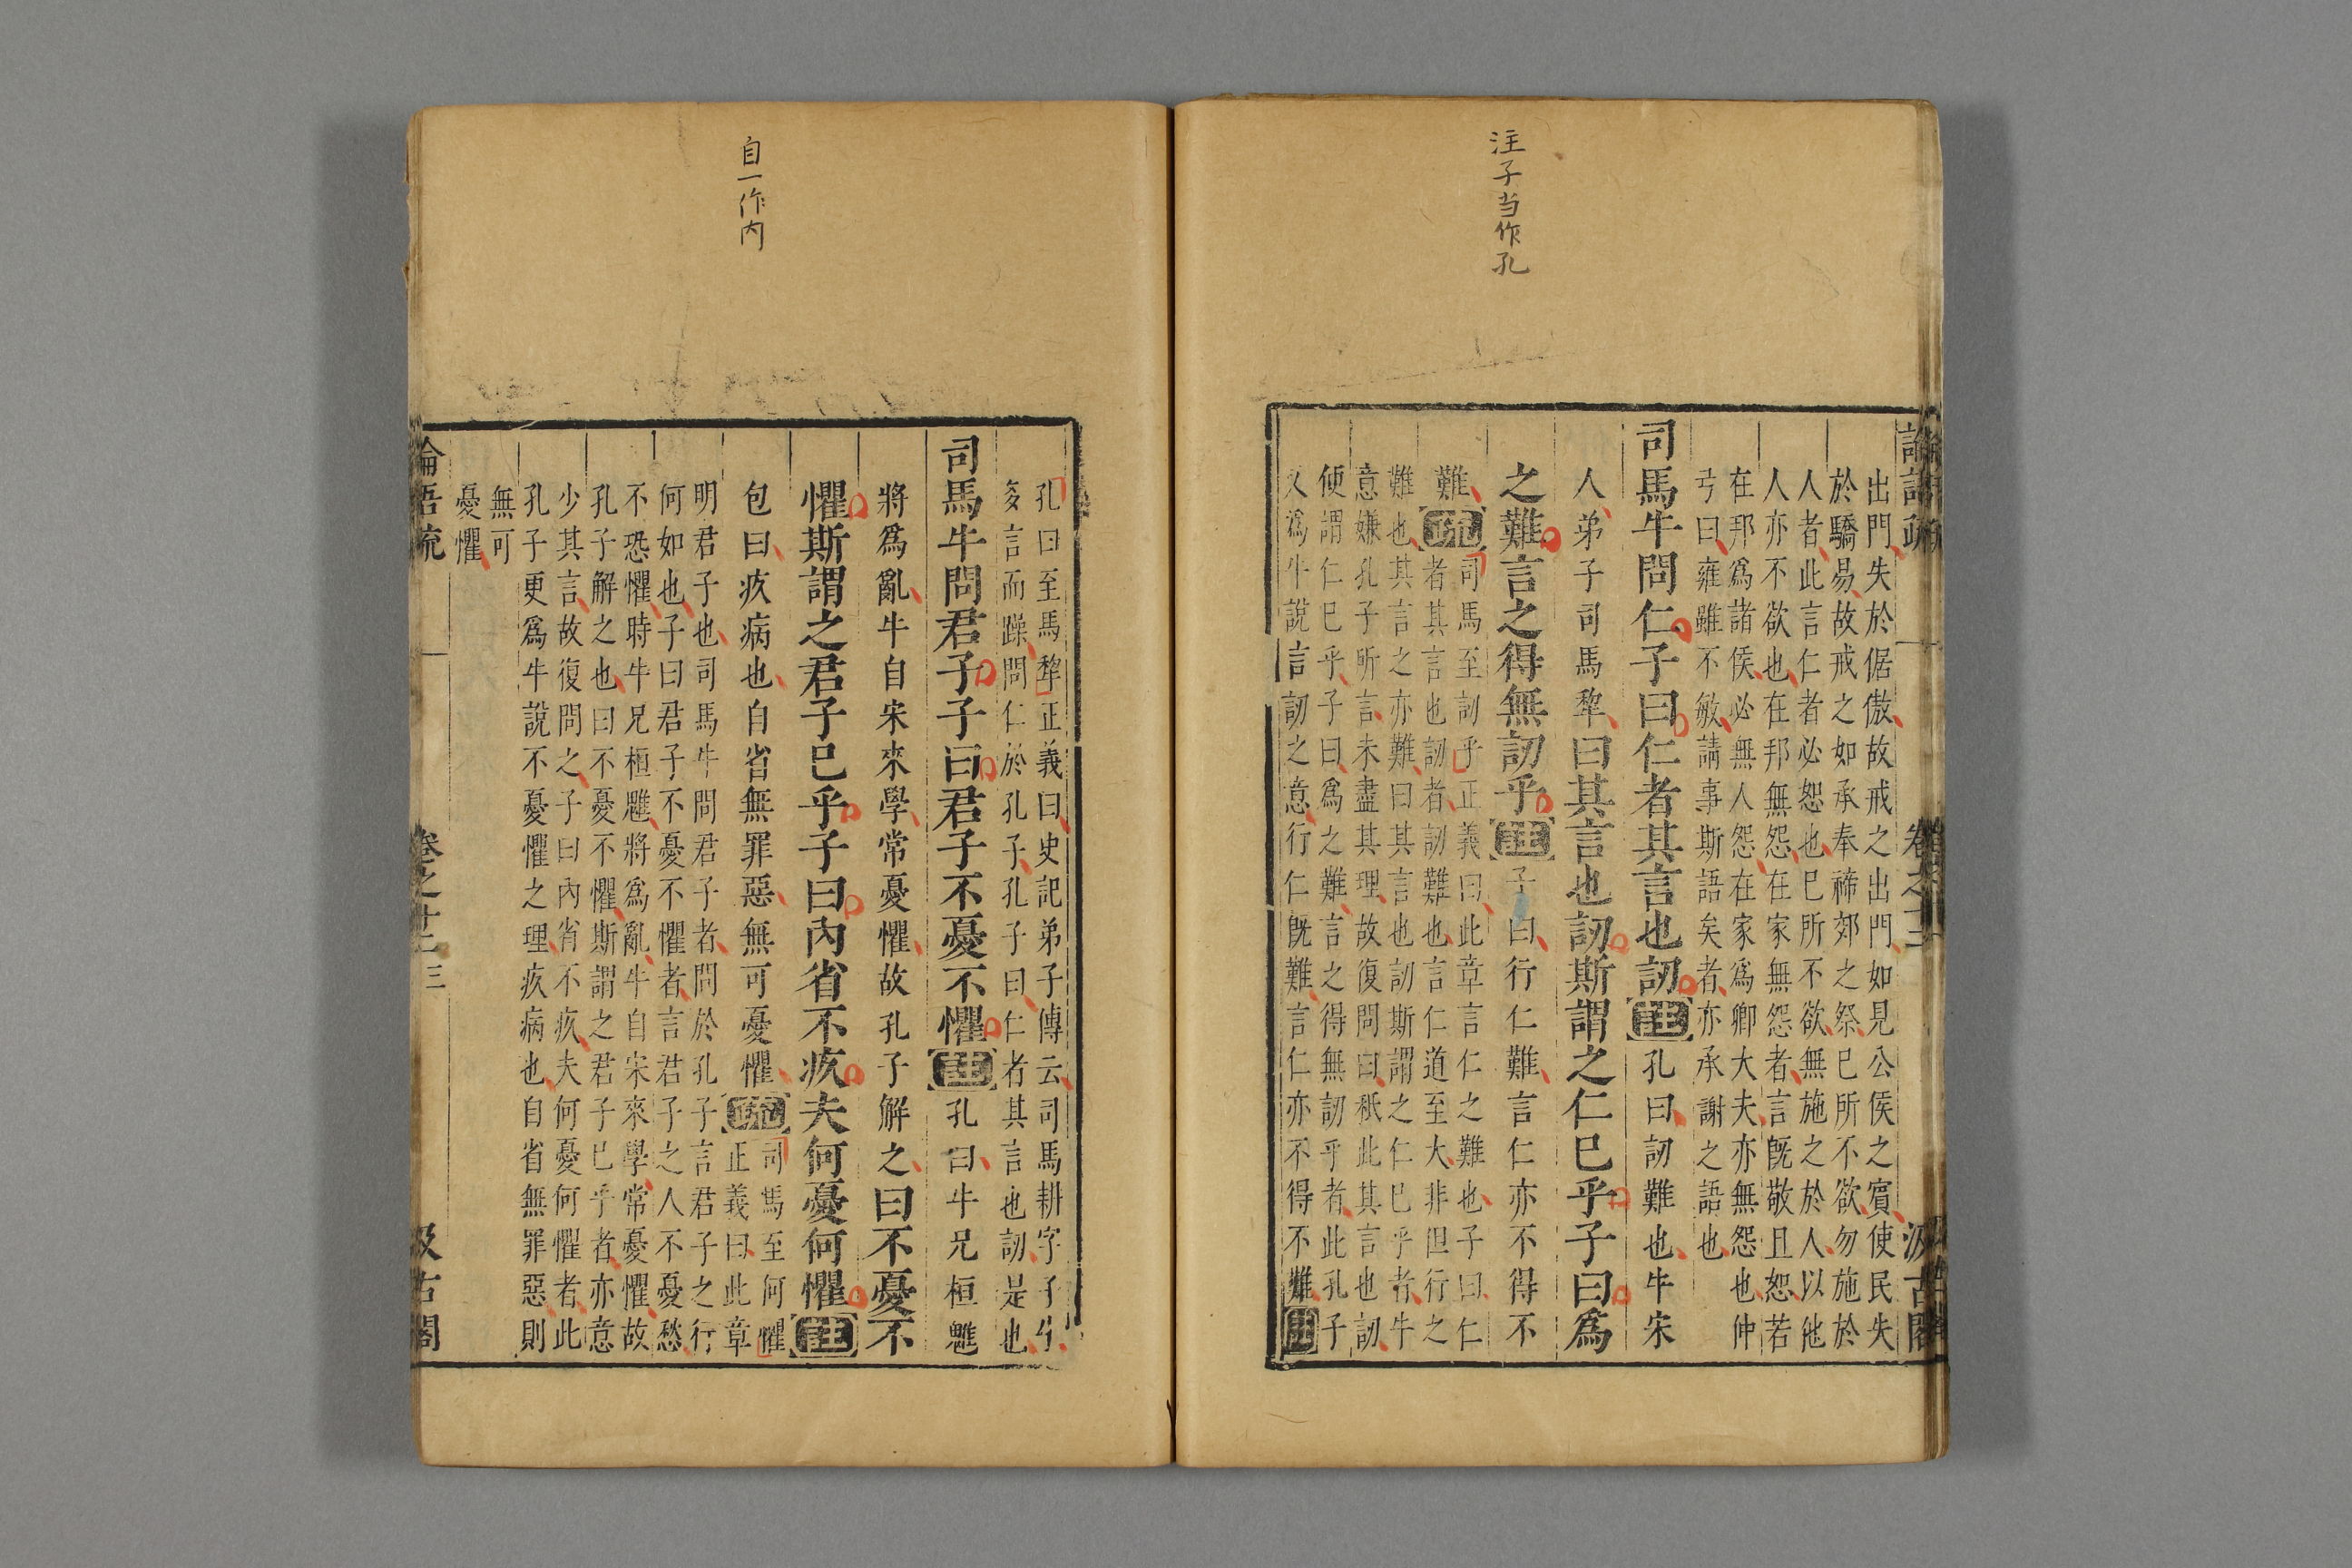 注子当作孔
論語疏
卷之十二
汲古閣
出門失於倨傲故戒之出門如見公侯之賓使民失
於驕易故戒之如承奉禘郊之祭巳所不欲勿施於
人者此言仁者必恕也巳所不欲無施之於人以他
人亦不欲也在邦無怨在家無怨者言旣敬且恕若
在邦爲諸侯必無人怨在家爲卿大夫亦無怨也仲
弓曰雍雖不敏請事斯語矣者亦承謝之語也
司馬牛問仁子曰仁者其言也訒註孔曰訒難也牛宋
人弟子司馬犂曰其言也訒斯謂之仁巳乎子曰爲
之難言之得無訒乎註子曰行仁難言仁亦不得不
難疏司馬至訒乎正義曰此章言仁之難也子曰仁
者其言也訒者訒難也言仁道至大非但行之
難也其言之亦難曰其言也訒斯謂之仁巳乎者牛
意嫌孔子所言未盡其理故復問曰秪此其言也訒
便謂仁巳乎子曰爲之難言之得無訒乎者此孔子
又爲牛說言訒之意行仁旣難言仁亦不得不難註
自一作内
孔曰至馬犂正義曰史記弟子傳云司馬耕字子牛
多言而躁問仁於孔子孔子曰仁者其言也訒是也
司馬牛問君子子曰君子不憂不懼註孔曰牛兄桓魋
將爲亂牛自宋來學常憂懼故孔子解之曰不憂不
懼斯謂之君子巳乎子曰內省不疚夫何憂何懼註
包曰疚病也自省無罪惡無可憂懼疏司馬至何懼
正義曰此章
明君子也司馬牛問君子者問於孔子言君子之行
何如也子曰君子不憂不懼者言君子之人不憂愁
不恐懼時牛兄桓魋將爲亂牛自宋來學常憂懼故
孔子解之也曰不憂不懼斯謂之君子巳乎者亦意
少其言故復問之子曰內省不疚夫何憂何懼者此
孔子更爲牛說不憂懼之理疚病也自省無罪惡則
無可
憂懼
論語疏
卷之十二
三
汲古閣